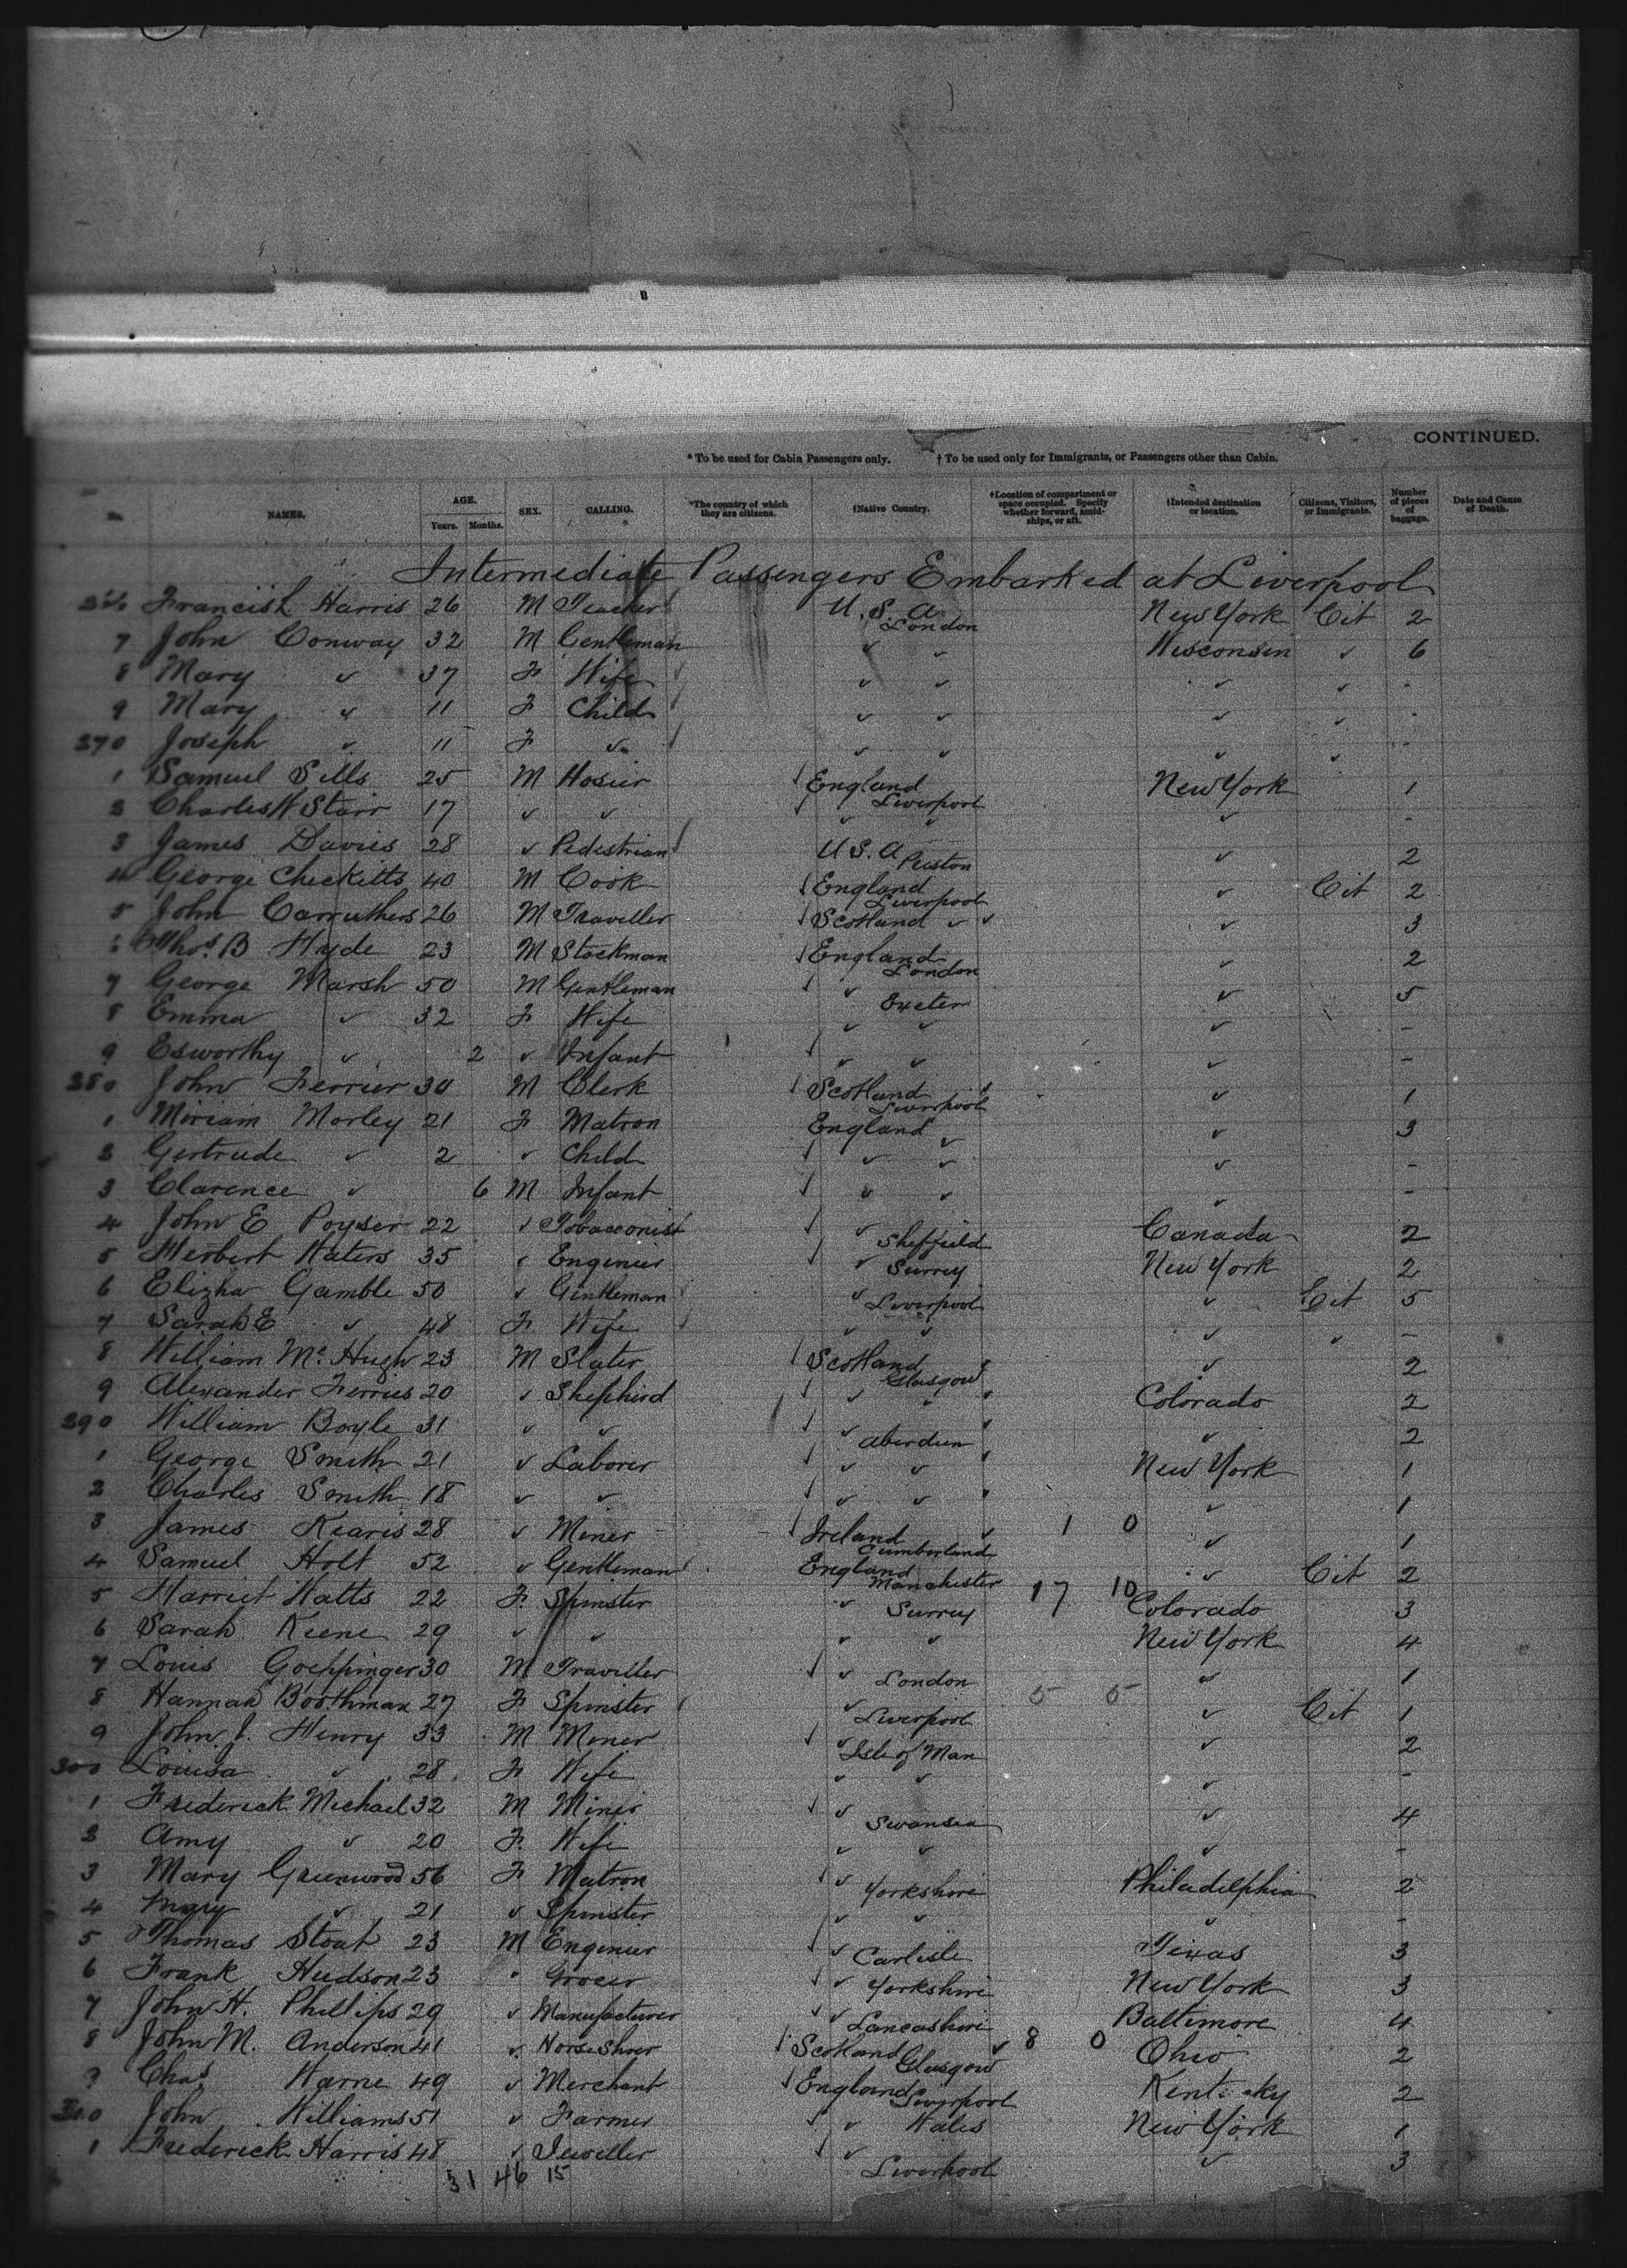 CONTINUED.
* To be used for Cabin Passengers only. † To be used only for Immigrants, or Passengers other than Cabin.
NAMES. AGE. Years. Months. SEX. CALLING. *The country of which they are citizens. †Native Country. †Location of compartment or space occupied. Specify whether forward, amidships, or aft. †Intended destination or location. Citizens, Visitors, or Immigrants. Number of pieces of baggage. Date and Cause of Death.
Intermediate Passengers Embarked at Liverpool
Francis L Harris 26 M Teacher U.S.A. London New York Cit 2
7 John Conway 32 M Gentleman " " Wisconsin " 6
8 Mary " 37 F Wife " " " " -
9 Mary " 11 F Child " " " " -
270 Joseph " 11 F " " " " " -
1 Samuel Sills 25 M Hosier England Liverpool New York 1
2 Charles W Starr 17 " " " " " -
3 James Davies 28 " Pedestrian U.S.A Preston " 2
4 George Checketts 40 M Cook England Liverpool " Cit 2
5 John Carruthers 26 M Traveller Scotland " " " 3
6 Thos. B Hyde 23 M Stockman England London " 2
7 George Marsh 50 M Gentleman " Exeter " 5
8 Emma " 32 F Wife " " " -
9 Esworthy " 2 " Infant " " " -
280 John Ferrier 30 M Clerk Scotland Liverpool " 1
1 Miriam Morley 21 F Matron England " " 3
2 Gertrude " 2 " Child " " " -
3 Clarence " 6 M Infant " " " -
4 John E Poyser 22 " Tobacconist " Sheffield Canada 2
5 Herbert Waters 35 " Engineer " Surrey New York 2
6 Elizha Gamble 50 " Gentleman " Liverpool " Cit 5
7 Sarah E " 48 F Wife " " " " -
8 William Mc Hugh 23 M Slater Scotland Glasgow " 2
9 Alexander Ferries 20 " Shepherd " " Colorado 2
290 William Boyle 31 " " " Aberdeen " 2
1 George Smith 21 " Laborer " " New York 1
2 Charles Smith 18 " " " " " 1
3 James Kearis 28 " Miner Ireland Cumberland 1 0 " 1
4 Samuel Holt 52 " Gentleman England Manchester " Cit 2
5 Harriet Watts 22 F Spinster " Surrey 17 10 Colorado 3
6 Sarah Keene 29 " " " " New York 4
7 Louis Goeppinger 30 M Traveller " London " 1
8 Hannah Boothman 27 F Spinster " Liverpool 5 5 " Cit 1
9 John J. Henry 33 M Miner " Isle of Man " 2
300 Louisa " 28 F Wife " " " -
1 Frederick Michael 32 M Miner " Swansea " 4
2 Amy " 20 F. Wife " " " -
3 Mary Greenwood 56 F Matron " Yorkshire Philadelphia 2
4 Mary " 21 " Spinster " " " -
5 Thomas Stoat 23 M Engineer " Carlisle Texas 3
6 Frank Hudson 23 " Grocer " Yorkshire New York 3
7 John H. Phillips 29 " Manufacturer " Lancashire Baltimore 4
8 John M. Anderson 41 " Horse Shoer Scotland Glasgow 8 0 Ohio 2
9 Chas. Warne 49 " Merchant England Liverpool 2
310 John Williams 51 " Farmer " Wales New York 1
1 Frederick Harris 48 " Jeweller " Liverpool " 3
31 46 15